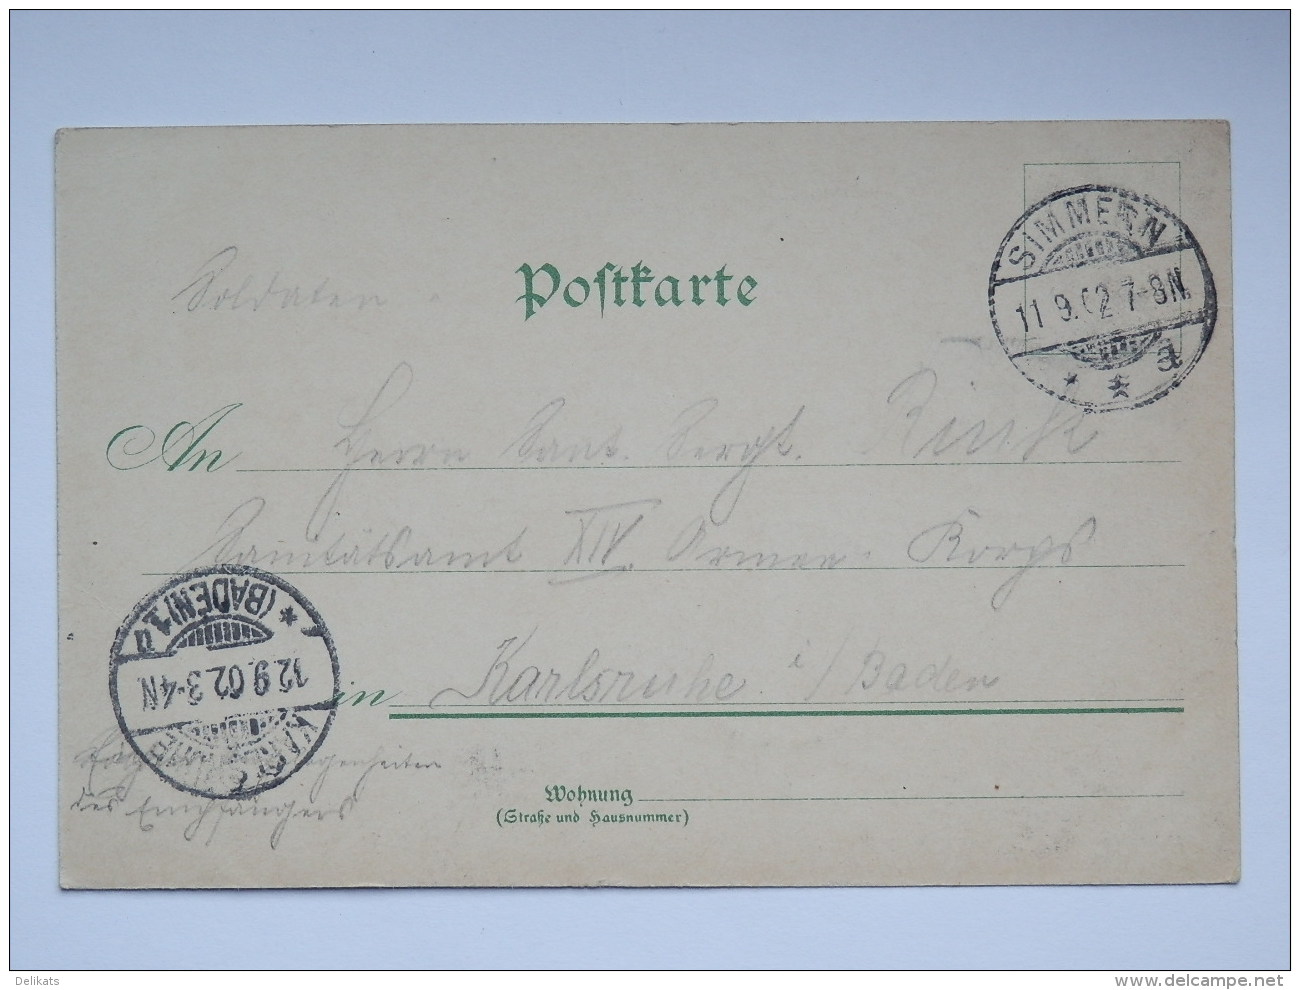 SIMMERN
11 9. 02 7-8N.
* * a
Soldaten
Postkarte
An Herrn Sant. Sergt.
Sanitätsamt XIV. Armee-Korps
in Karlsruhe i/Baden
KARLSRUHE
12.9.02. 3-4N
* (BADEN) 1
des Empfängers
Wohnung
(Straße und Hausnummer)
Delikats
delcampe.net